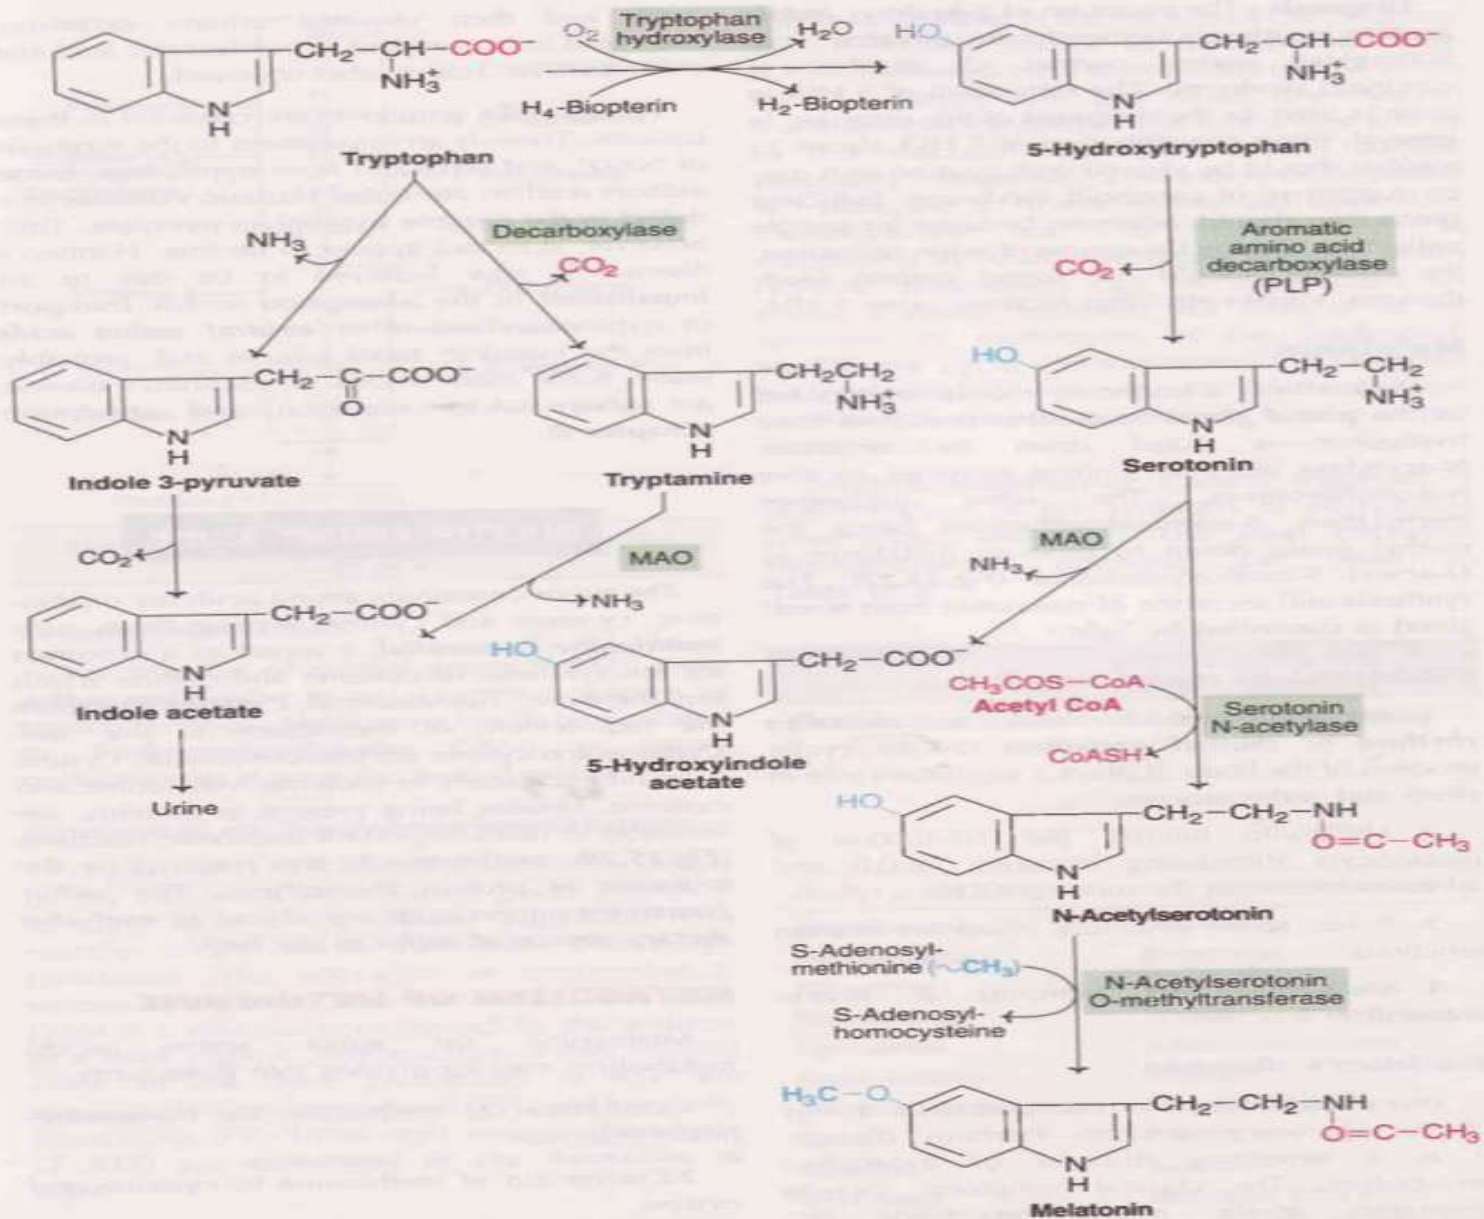 CH₂–CH–COO⁻
NH₃⁺
N
H
Tryptophan
O₂
Tryptophan
hydroxylase
H₂O
H₄-Biopterin
H₂-Biopterin
HO
CH₂–CH–COO⁻
NH₃⁺
N
H
5-Hydroxytryptophan
NH₃
Decarboxylase
CO₂
Aromatic
amino acid
decarboxylase
(PLP)
CO₂
CH₂–C–COO⁻
O
N
H
Indole 3-pyruvate
CH₂CH₂
NH₃⁺
N
H
Tryptamine
HO
CH₂–CH₂
NH₃⁺
N
H
Serotonin
CO₂
MAO
NH₃
MAO
NH₃
CH₂–COO⁻
N
H
Indole acetate
Urine
HO
CH₂–COO⁻
N
H
5-Hydroxyindole
acetate
CH₃COS–CoA
Acetyl CoA
Serotonin
N-acetylase
CoASH
HO
CH₂–CH₂–NH
O=C–CH₃
N
H
N-Acetylserotonin
S-Adenosyl-
methionine (~CH₃)
N-Acetylserotonin
O-methyltransferase
S-Adenosyl-
homocysteine
H₃C–O
CH₂–CH₂–NH
O=C–CH₃
N
H
Melatonin